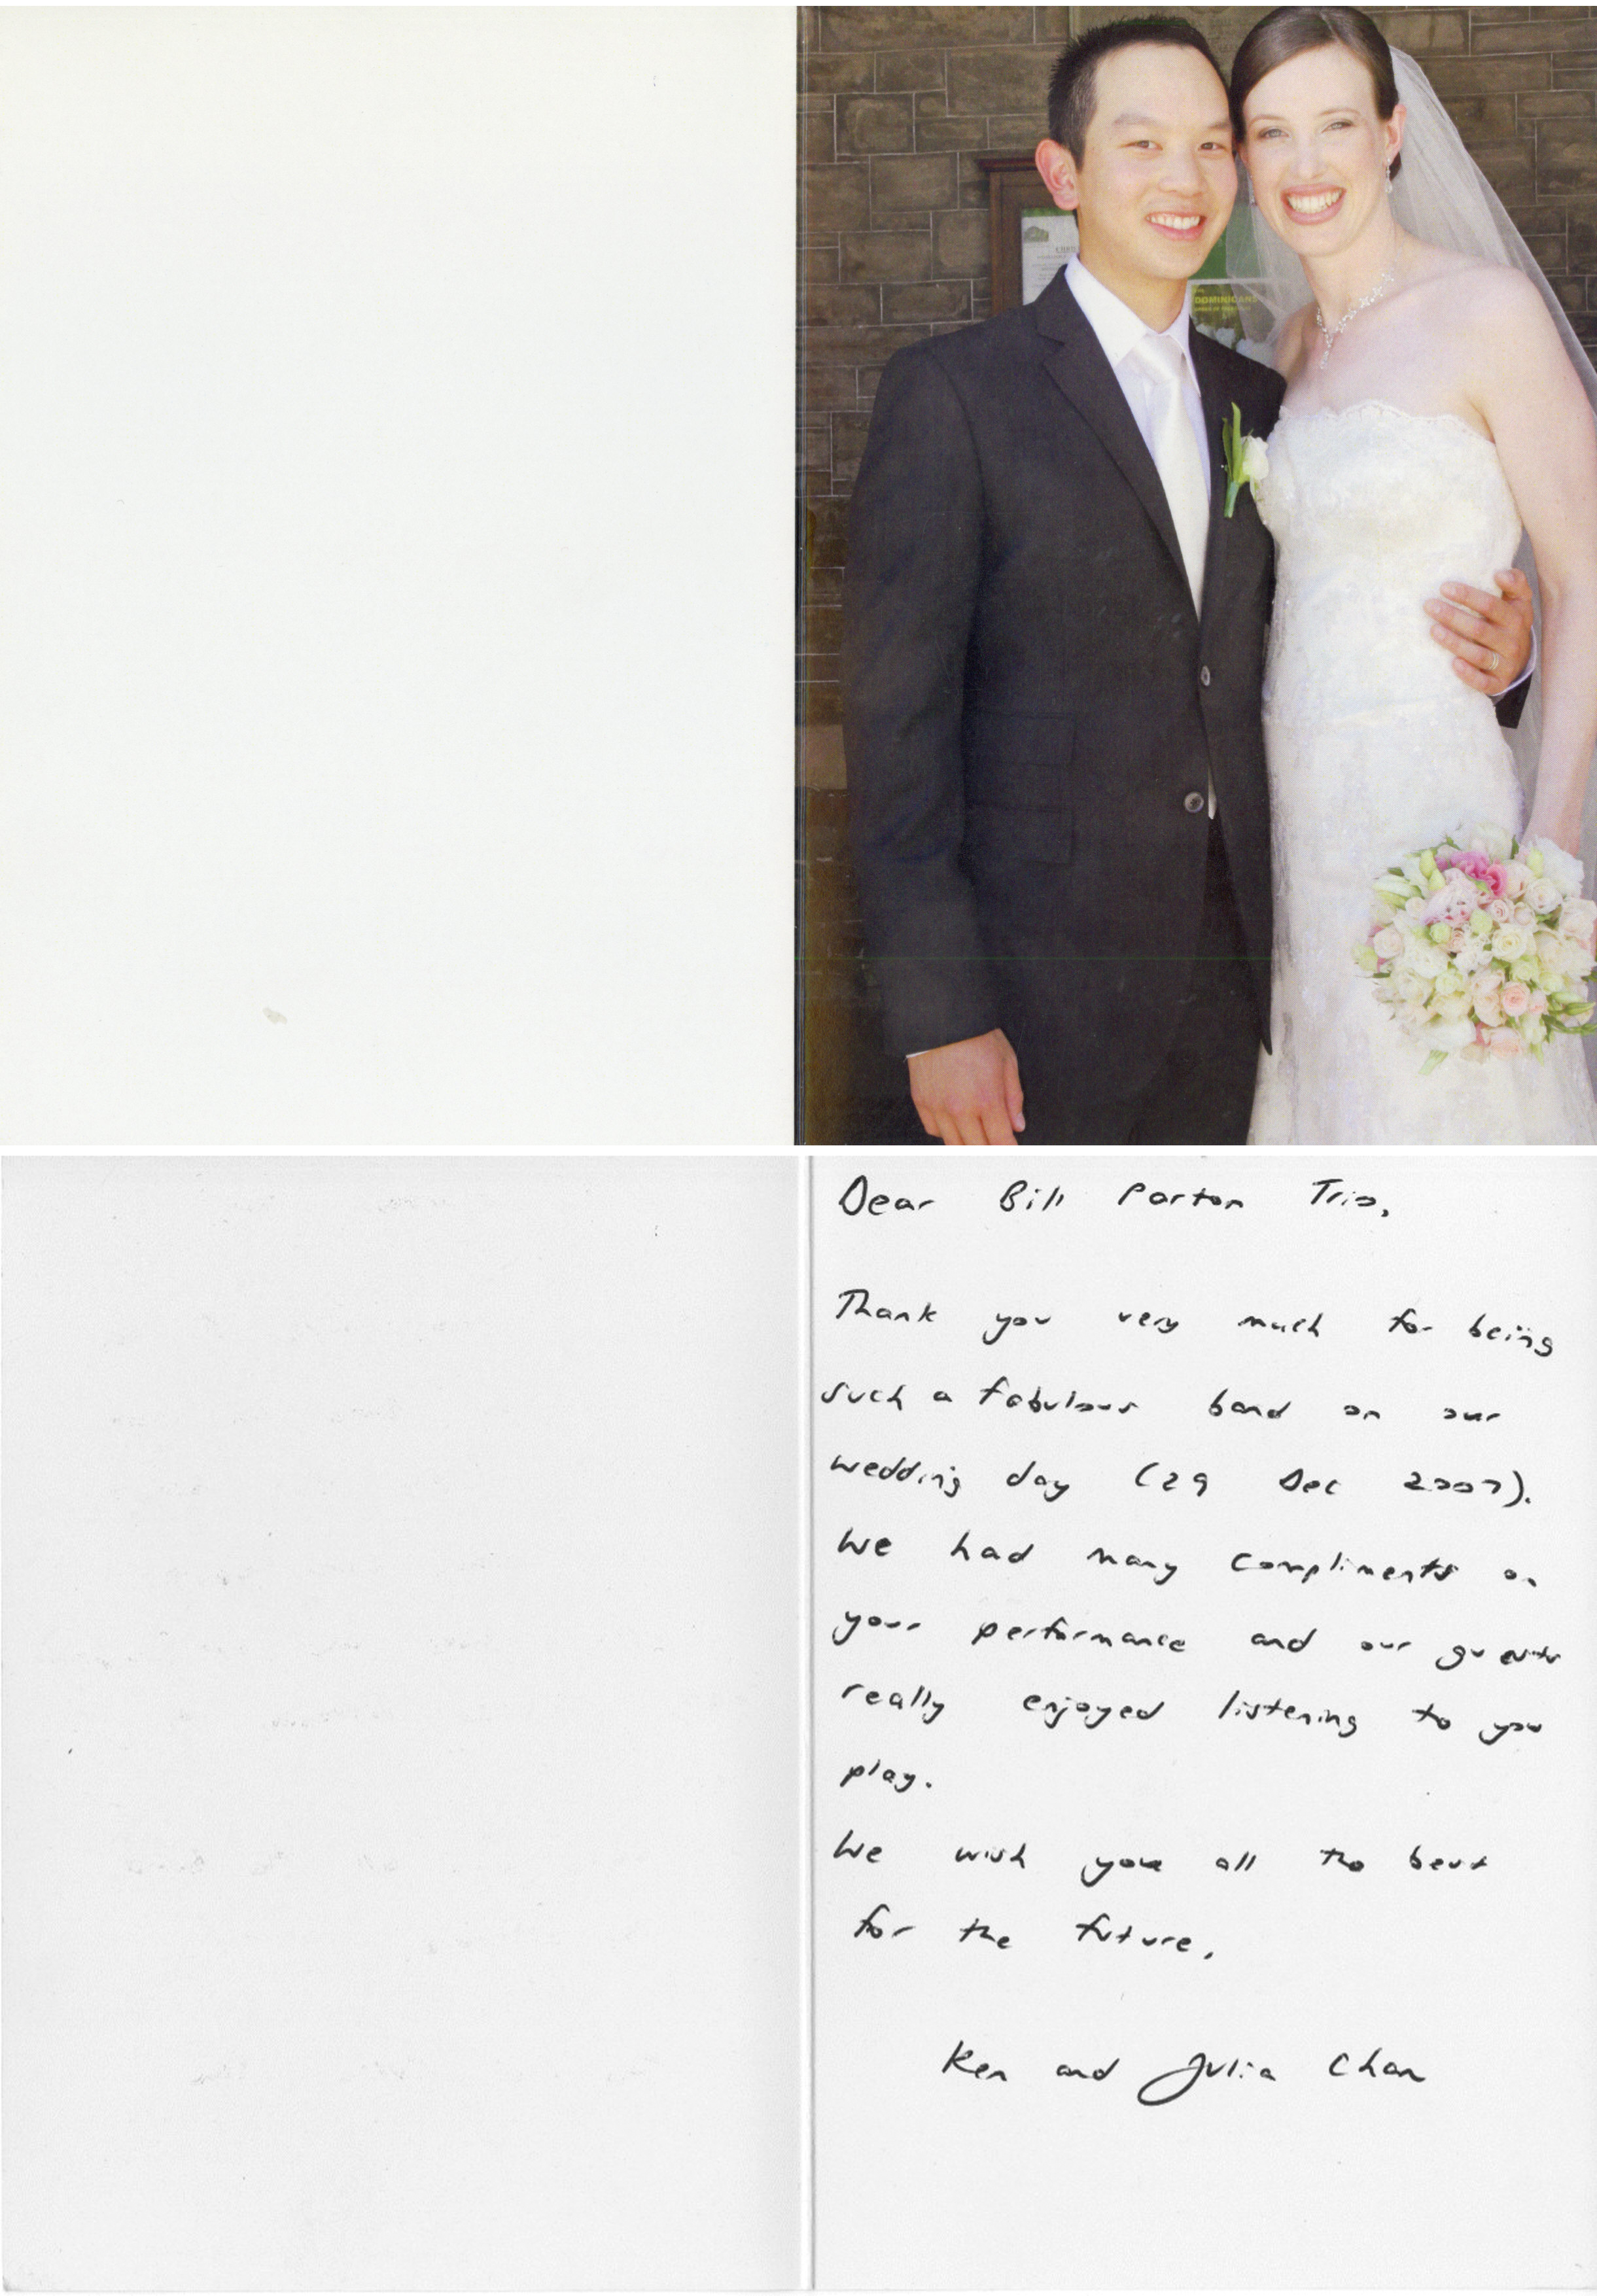 DOMINICANS
Dear Bill Parton Trio,
Thank you very much for being
such a fabulous band on our
wedding day (29 Dec 2007).
We had many compliments on
your performance and our guests
really enjoyed listening to you
play.
We wish you all the best
for the future.
Ken and Julia Chan